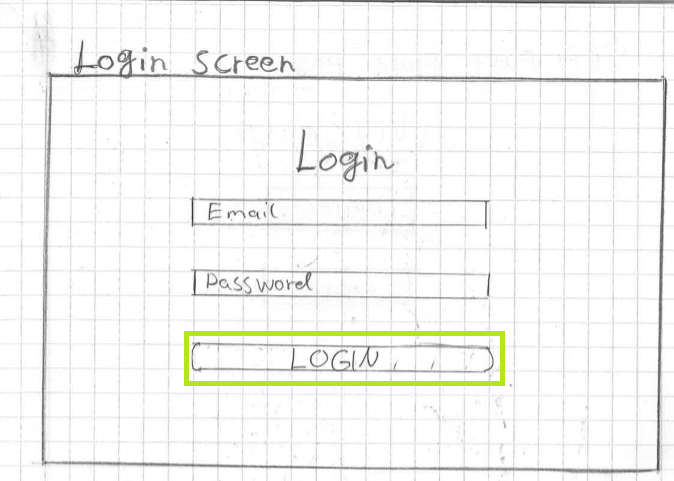 Login screen
Login
Email
Password
LOGIN